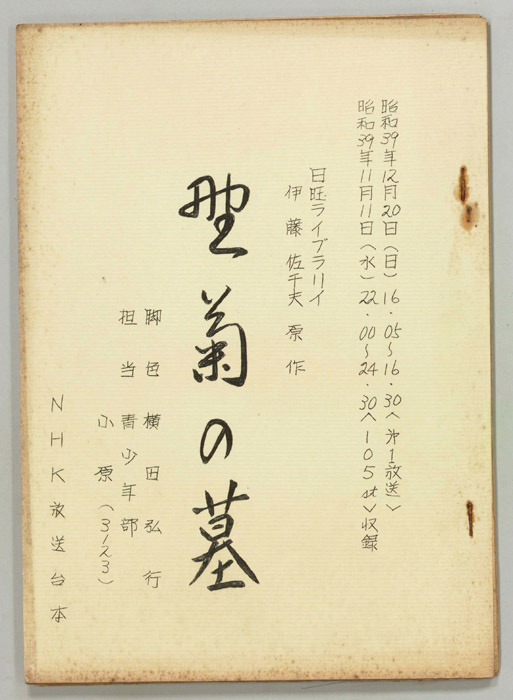 昭和39年12月20日（日）16・05～16・30〈第1放送〉
昭和39年11月11日（水）22・00～24・30〈105st〉収録
日旺ライブラリイ
伊藤佐千夫 原作
野菊の墓
脚色 横田弘行
担当 青少年部
小原（3123）
NHK放送台本